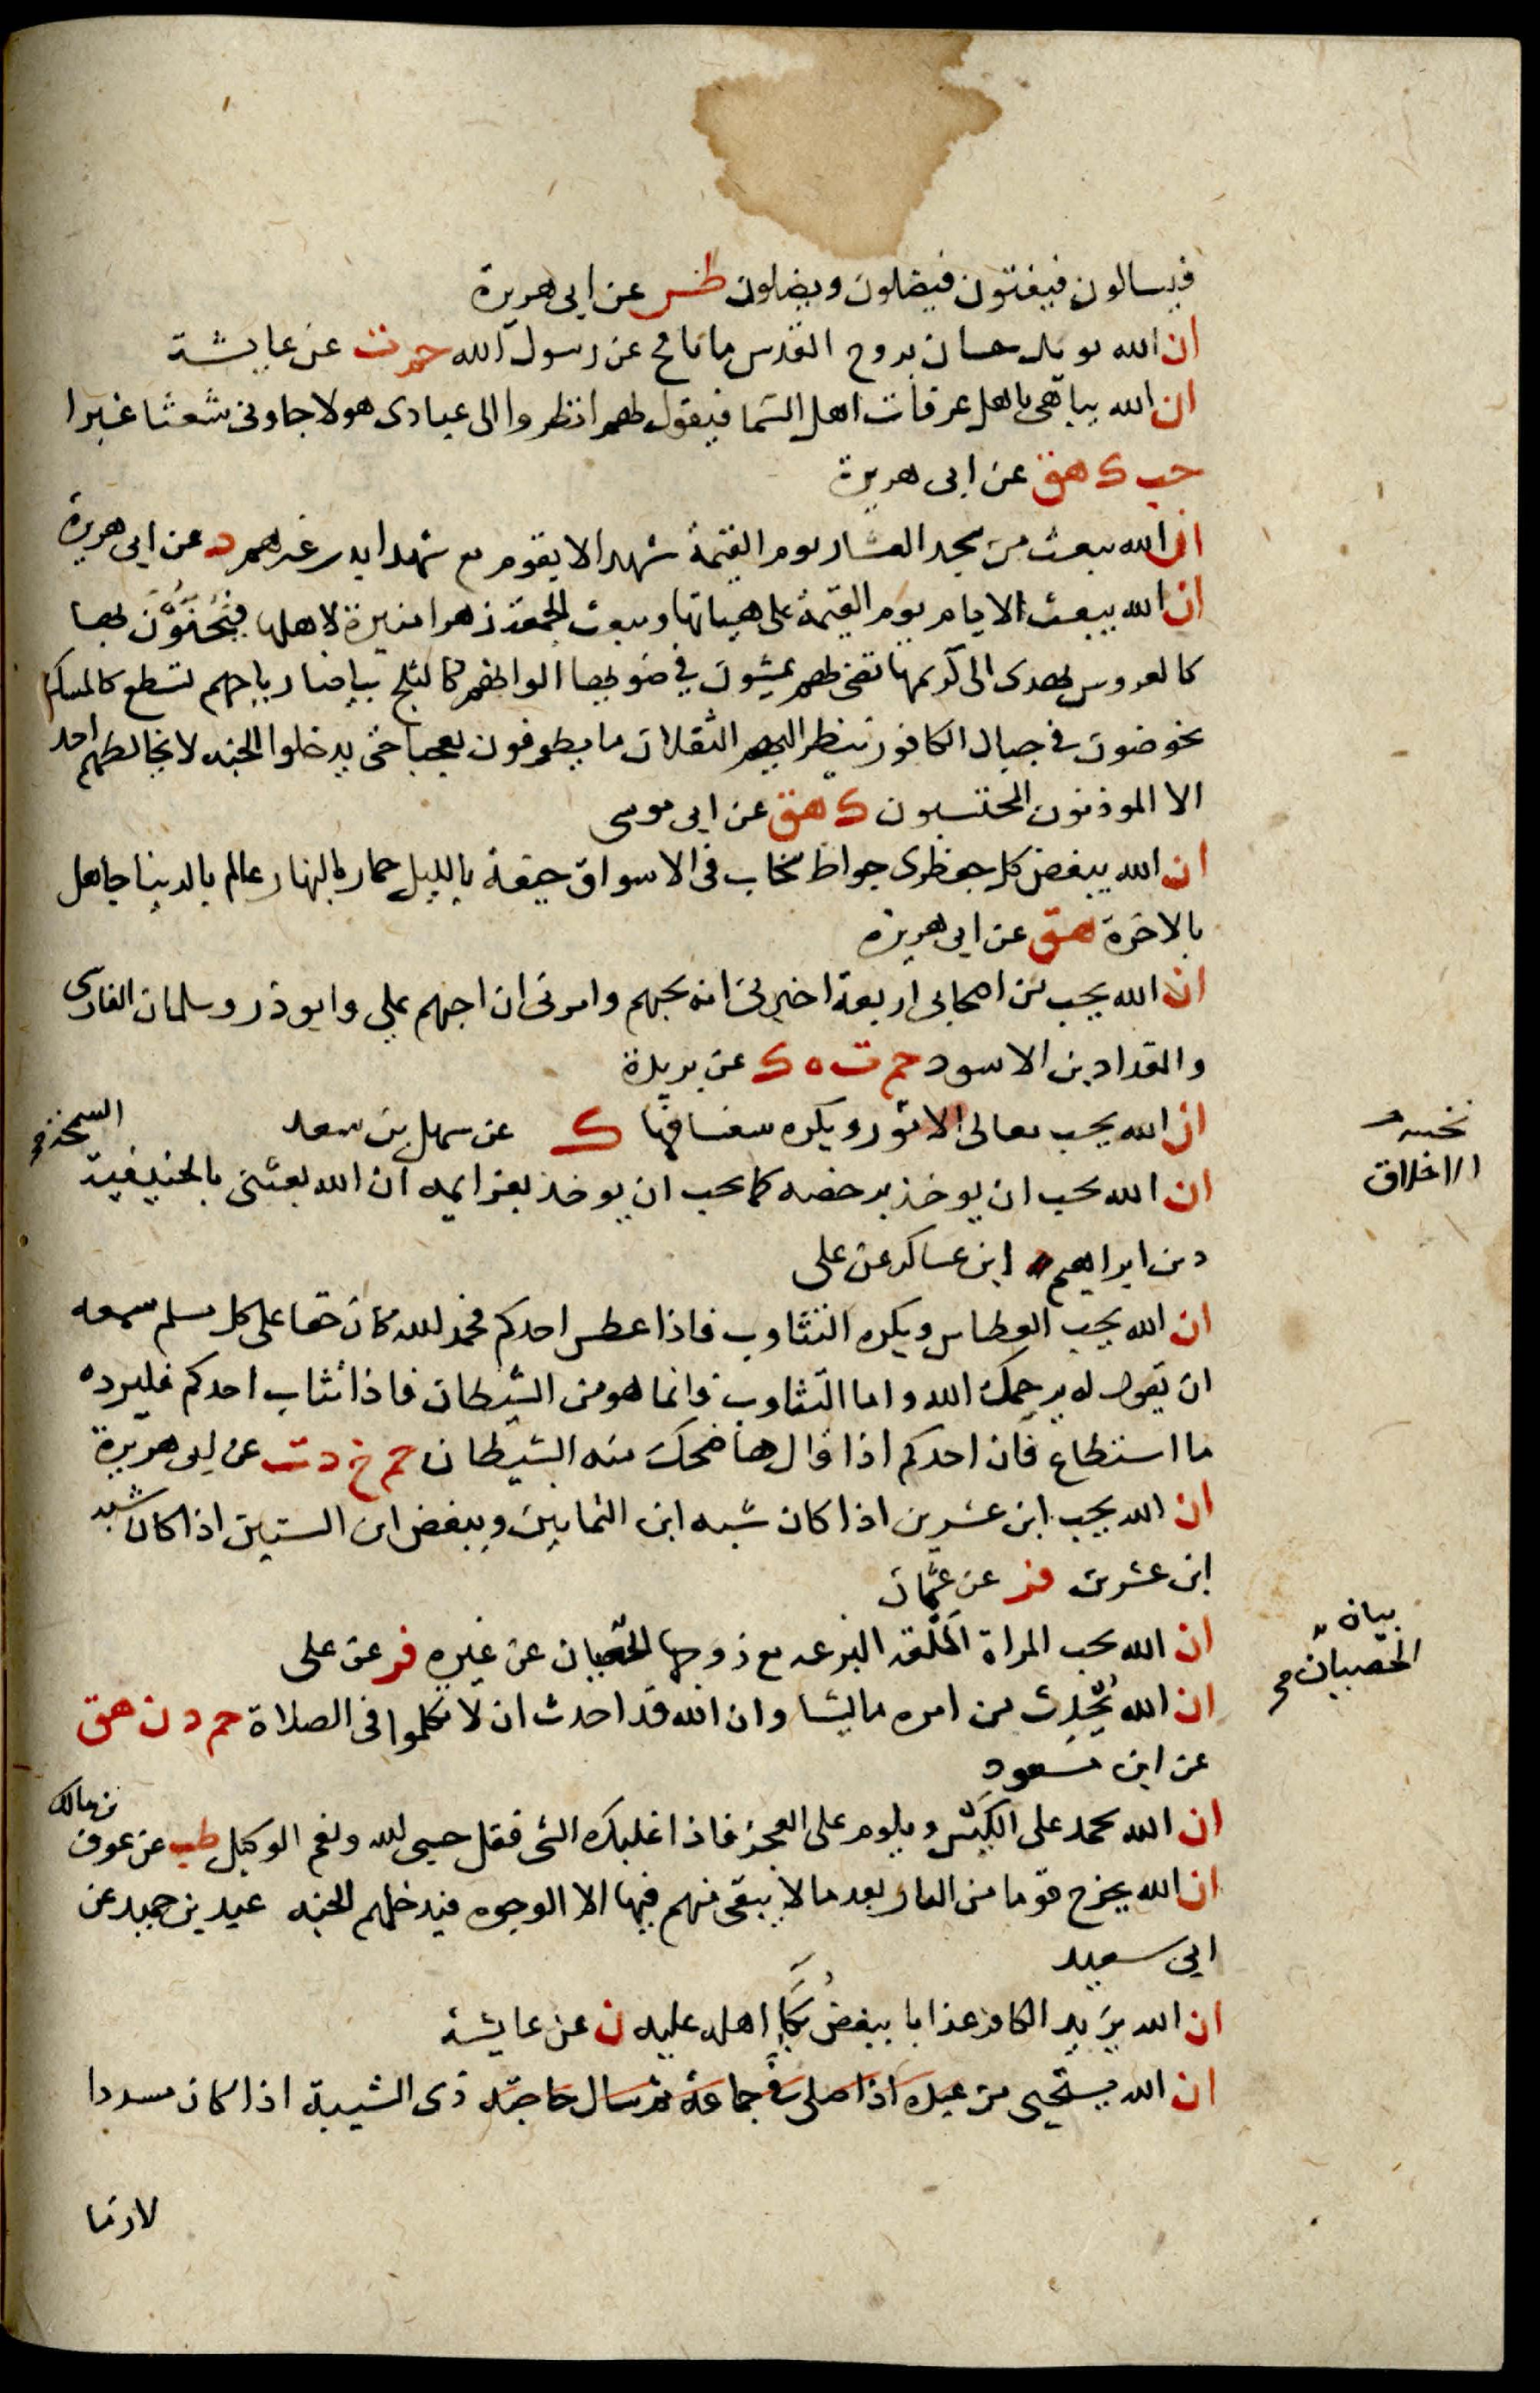 فيسالون فيفتون فيضلون ويضلون طس عن ابى هريرة
ان الله يويد حسان بروح القدس ما نافح عن رسول الله حم ت عن عايشة
ان الله يباهى باهل عرفات اهل السما فيقول لهم انظروا الى عبادى هولا جاونى شعثا غبرا
حب ك هق عن ابى هريرة
ان الله يبعث من مسجد العشار يوم القيمة شهدا لا يقوم مع شهدا بدر غيرهم د عن ابى هريرة
ان الله يبعث الايام يوم القيمة على هياتها ويبعث الجمعة زهرا منيرة لاهلها فيحفون بها
كالعروس تهدى الى كريمها تضى لهم يمشون فى ضوها الوانهم كالثلج بياضا رياحهم تسطع كالمسك
يخوضون فى جبال الكافور ينظر اليهم الثقلان ما يطرفون تعجبا حتى يدخلوا الجنه لا يخالطهم احد
الا الموذنون المحتسبون ك هق عن ابى موسى
ان الله يبغض كل جعظرى جواظ سخاب فى الاسواق جيفة بالليل حمار بالنهار عالم بالدنيا جاهل
بالاخرة هق عن ابى هريرة
ان الله يحب من اصحابى اربعة اخبرنى انه يحبهم وامرنى ان احبهم على وابو ذر وسلمان الفارسى
والمقداد بن الاسود حم ت ه ك عن بريدة
ان الله يحب معالى الامور ويكره سفسافها ك عن سهل بن سعد
ان الله يحب ان يوخذ برخصه كما يحب ان يوخذ بعزايمه ان الله بعثنى بالحنيفية السمحة
دين ابراهيم ابن عساكر عن على
ان الله يحب العطاس ويكره التثاوب فاذا عطس احدكم فحمد لله كان حقا على كل مسلم سمعه
ان يقول له يرحمك الله واما التثاوب فانما هو من الشيطان فاذا تثاب احدكم فليرده
ما استطاع فان احدكم اذا قال ها ضحك منه الشيطان حم خ د ت عن ابى هريرة
ان الله يحب ابن عشرين اذا كان شبه ابن الثمانين ويبغض ابن الستين اذا كان شبه
ابن عشرين فر عن عثمان
ان الله يحب المراة المَلِقة البزعه مع زوجها الحصان عن غيره فر عن على
ان الله يُحدث من امره ما يشا وان الله قد احدث ان لا تكلموا فى الصلاة حم د ن هق
عن ابن مسعود
ان الله يحمد على الكَيْس ويلوم على العجز فاذا غلبك الشى فقل حسبى الله ونعم الوكيل طب عن عوف بن مالك
ان الله يخرج قوما من النار بعد ما لا يبقى منهم فيها الا الوجوه فيدخلهم الجنه عبد بن حميد عن
ابى سعيد
ان الله يزيد الكافر عذابا ببعض بُكَاءِ اهله عليه ن عن عايشة
ان الله يستحيى من عبده اذا صلى فى جماعة ثم سال حاجته ذى الشيبة اذا كان مسددا
لازما
الاخلاق
بيان
الحصان